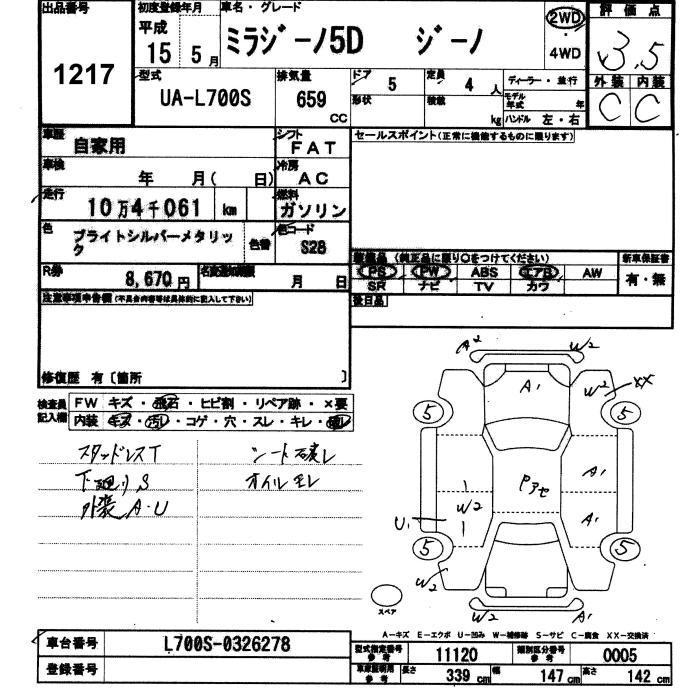 出品番号
1217
初度登録年月
平成
15 5月
車名・グレード
ミラジーノ5D ジーノ
2WD
・
4WD
評価点
3.5
外装 内装
C C
型式
UA-L700S
排気量
659
CC
ドア
5
定員
4 人
ディーラー・並行
形状
積載
kg
モデル年式
年
ハンドル 左・右
車歴
自家用
シフト
FAT
セールスポイント(正常に機能するものに限ります)
車検
年 月( 日)
冷房
AC
走行
10万4千061 km
燃料
ガソリン
色
ブライトシルバーメタリック
色番
色コード
S28
装備品 (純正品に限り〇をつけてください)
新車保証書
PS PW ABS エアB AW
SR ナビ TV カワ
有・無
R券
8,670円
名義変更期限
月 日
後日品
注意事項申告欄(不具合内容等は具体的に記入して下さい)
修復歴 有〔箇所 〕
検査員記入欄
FW キズ・飛石・ヒビ割・リペア跡・×要
内装 キズ・汚レ・コゲ・穴・スレ・キレ・破レ
スタッドレスT
シート破レ
下廻りS
オイルモレ
外装A・U
A2 W2
A1
W2 XX
5 5
A1
Pアセ
W2
A1
U1
5 5
W2
W2 A1
スペア
A—キズ E—エクボ U—凹み W—補修跡 S—サビ C—腐食 XX—交換済
車台番号
L700S-0326278
登録番号
型式指定番号
参考
11120
類別区分番号
参考
0005
車庫証明用
参考
長さ 339 cm 幅 147 cm 高さ 142 cm